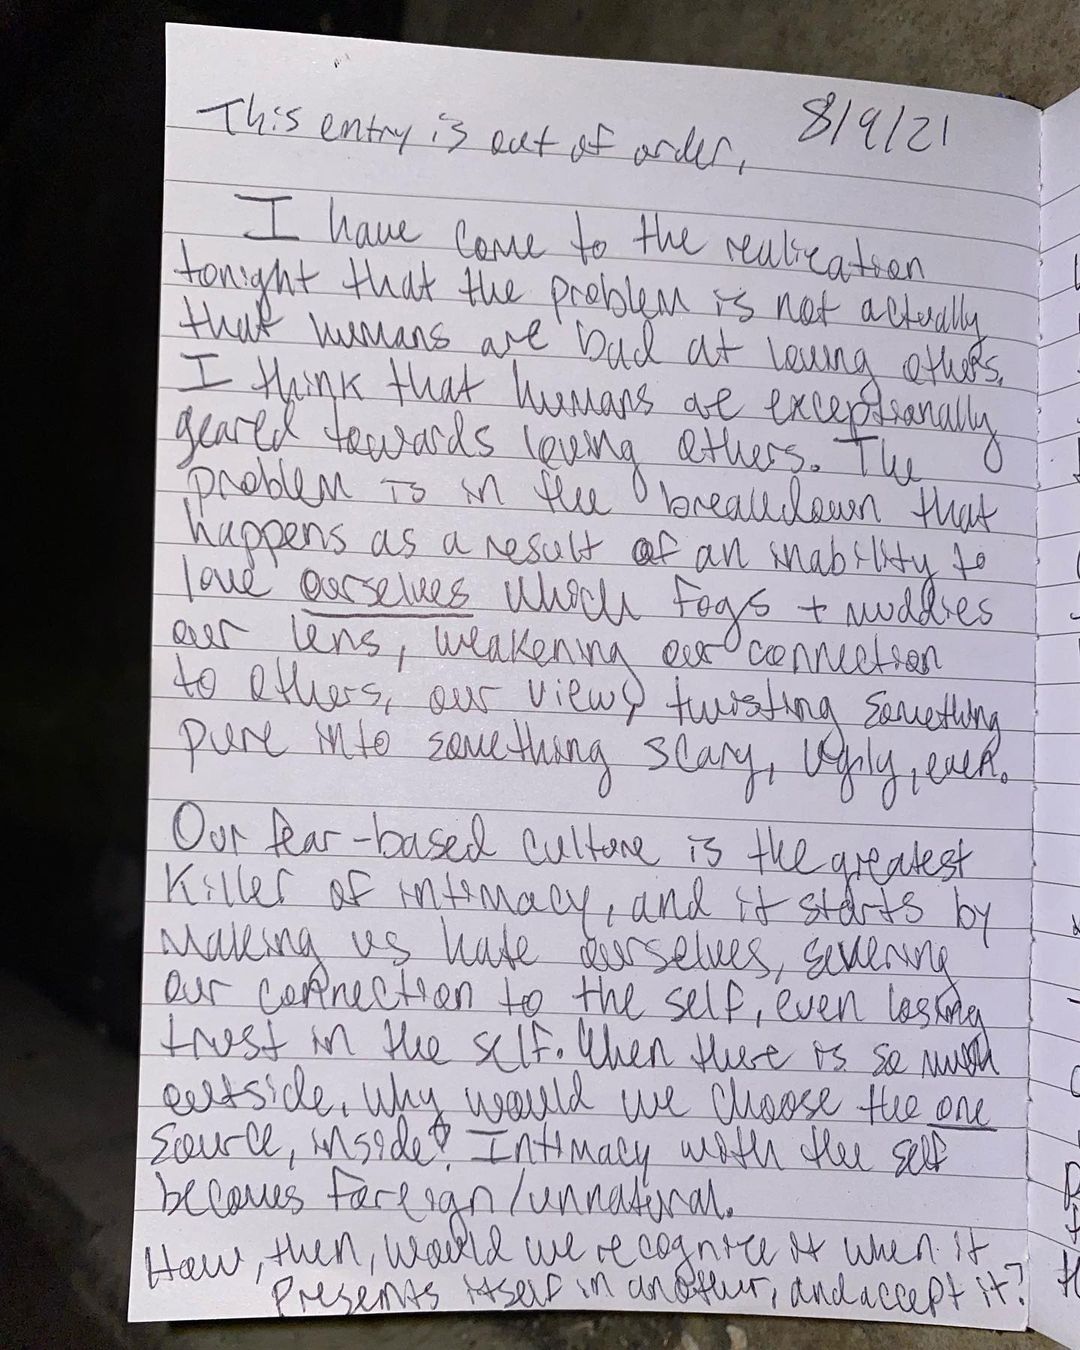 8/9/21
This entry is out of order,
I have come to the realization
tonight that the problem is not actually
that humans are bad at loving others.
I think that humans are exceptionally
geared towards loving others. The
problem is in the breakdown that
happens as a result of an inability to
love ourselves which fogs + muddies
our lens, weakening our connection
to others, our view, twisting something
pure into something scary, ugly, even.
Our fear-based culture is the greatest
killer of intimacy, and it starts by
making us hate ourselves, severing
our connection to the self, even losing
trust in the self. When there is so much
outside, why would we choose the one
source, inside? Intimacy with the self
becomes foreign/unnatural.
How, then, would we recognize it when it
presents itself in another, and accept it?